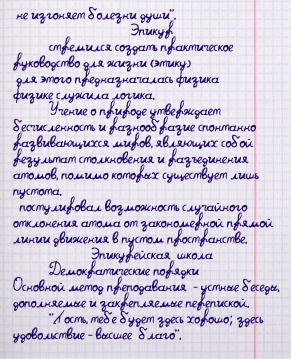 не изгоняет болезни души".
Эпикур
стремился создать практическое
руководство для жизни (этику)
для этого предназначалась физика
физике служила логика.
Учение о природе утверждает
бесчисленность и разнообразие спонтанно
развивающихся миров, являющих собой
результат столкновения и разъединения
атомов, помимо которых существует лишь
пустота.
постулировал возможность случайного
отклонения атома от закономерной прямой
линии движения в пустом пространстве.
Эпикурейская школа
Демократические порядки
Основной метод преподавания - устные беседы,
дополняемые и закрепляемые перепиской.
"Гость, тебе будет здесь хорошо; здесь
удовольствие - высшее благо".